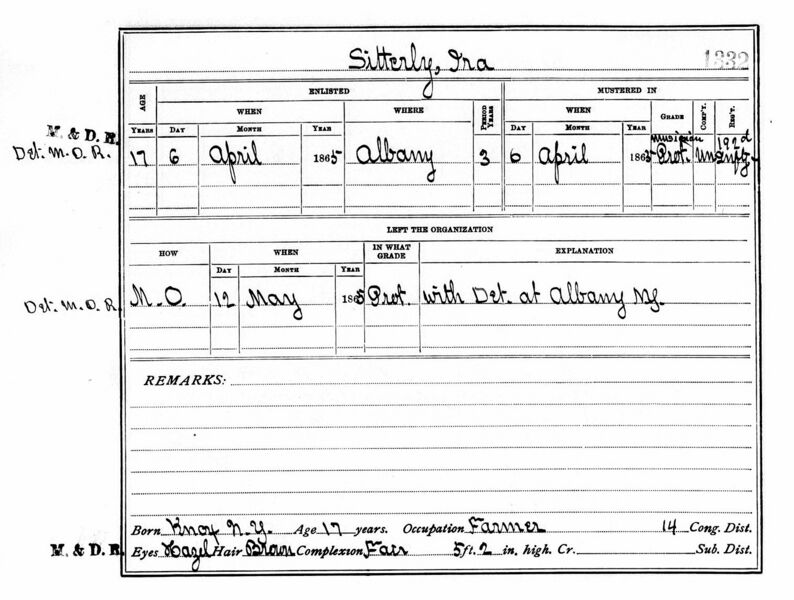 Sitterly, Ira 1332
ENLISTED MUSTERED IN
AGE WHEN WHERE PERIOD YEARS WHEN GRADE COMP'Y. REG'T.
M. & D. R. YEARS DAY MONTH YEAR DAY MONTH YEAR Musician 192d
Det. M. O. R. 17 6 April 1865 Albany 3 6 April 1865 Prvt. Un Infy.
LEFT THE ORGANIZATION
HOW WHEN IN WHAT GRADE EXPLANATION
DAY MONTH YEAR
Det. M. O. R. M. O. 12 May 1865 Prvt. with Det. at Albany NY.
REMARKS:
Born Knox N. Y. Age 17 years. Occupation Farmer 14 Cong. Dist.
M. & D. R. Eyes Hazel Hair Brown Complexion Fair 5 ft. 2 in. high. Cr. Sub. Dist.